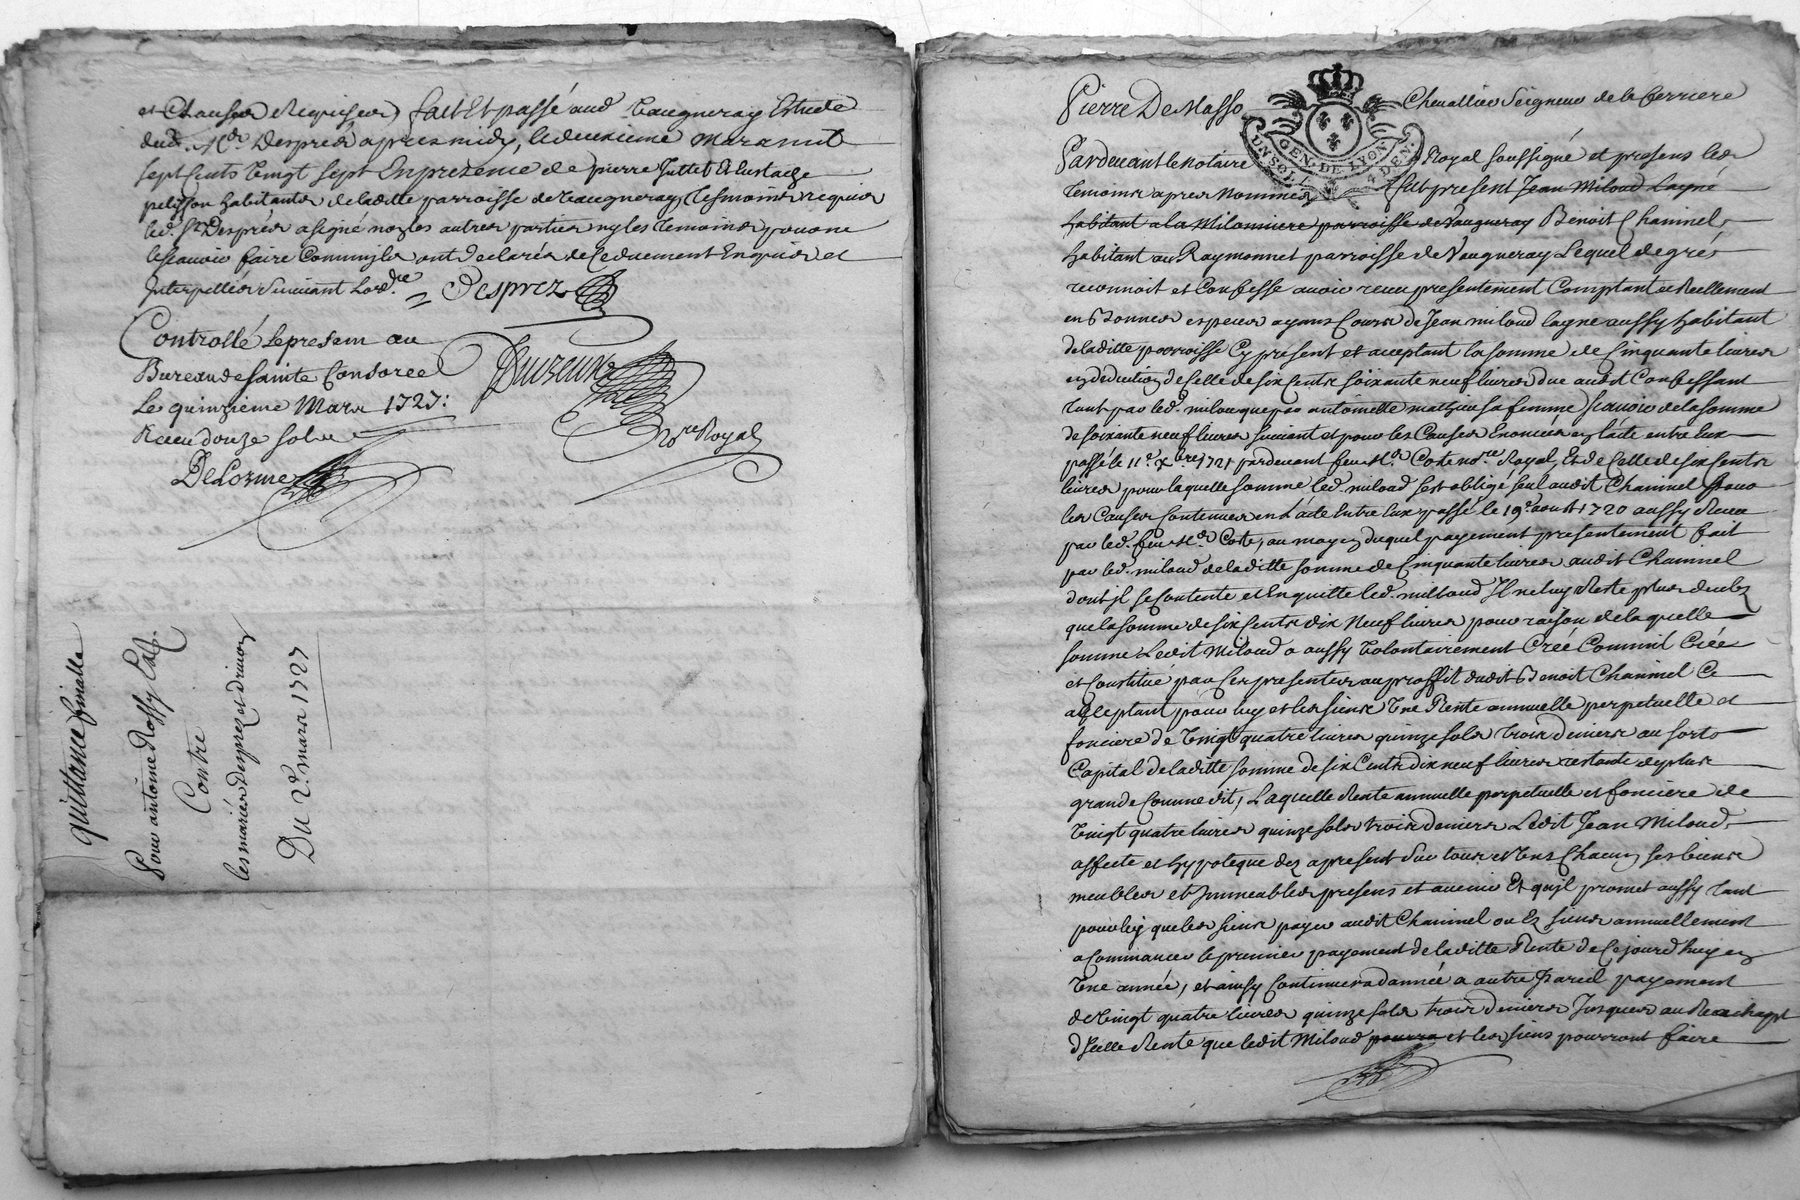 et Clauses Requises, fait Et passé aud Vaugneray Estude
dud. Me Desprès apres midy, le deuxieme Mars mil
sept Cents Vingt sept En presence de pierre Juttet Et Eustache
pelisson habitants de laditte parroisse de Vaugneray, Tesmoins requis
led. Sr Desprès a signé non les autres parties ny les temoins pour ne
le scavoir faire Comme ils ont declarés de Ce duement Enquis et
Interpellés suivant Lord.ce = Desprez
Controllé Le presem au
Bureau de Sainte Consorce
Le quinzieme Mars 1727:
Receu douze sols
DeLorme
Nre Royal
quittance finalle
Pour antoine Rossy
Contre
les mariés Desprez et
Du 2e mars 1727
Pierre De Masso Chevallier Seigneur de la ferriere
GEN. DE LYON
UN SOL 4 DEN.
Pardevant le Notaire Royal soussigné et presens les
temoins apres Nommés fut present Jean Miloud Layné
habitant a la Milonniere parroisse de Vaugneray Benoit Chaninel
habitant au Raymonnet parroisse de Vaugneray Lequel de gré
reconnoit et Confesse avoir receu presentement Comptant et Reellement
en Bonnes especes ayans Cours de Jean miloud layne aussy habitant
de laditte parroisse Cy present et aceptant la somme de Cinquante livres
en deduction de Celle de six Cents soixante neuf livres due audit Confessant
tant par led. miloud que par antoinette mathieu sa femme scavoir de la somme
de soixante neuf livres suivant et pour les Causes Enoncées en lacte entre Eux
passé le 11e xbre 1721 pardevant feu Me Coste nore Royal, Et de Celle de six Cents
livres pour laquelle somme led. miloud sest obligé seul audit Chaninel pour
les Causes Contenues en Lacte Entre Eux passé le 19e aoust 1720 aussy Receu
par led. feu Me Coste, au moyen duquel payement presentement fait
par led. miloud de laditte somme de Cinquante livres audit Chaninel
dont jl se Contente et En quitte led. miloud Il ne luy Reste plus deub
que la somme de six Cents dix Neuf livres pour raison de laquelle
somme Ledit Miloud a aussy Volontairement Créé Comme il Crée
et Constitue par Ces presentes au proffit dudit Benoit Chaninel Ce
aceptant pour luy et les siens Une Rente annuelle perpetuelle et
fonciere de Vingt quatre livres quinze sols trois deniers au sort
Capital de laditte somme de six Cents dix neuf livres restante de plus
grande Comme dit, Laquelle Rente annuelle perpetuelle et fonciere de
Vingt quatre livres quinze sols trois deniers Ledit Jean Miloud
affecte et hypoteque des a present sur tous et Uns Chacun ses biens
meubles et Immeubles presens et avenir Et qu'jl promet aussy tant
pour luy que les siens payer audit Chaninel ou Es siens annuellement
a Commancer le premier payement de laditte Rente de Ce jourd'huy en
Une année, et ainsy Continuer d'année a autre Pareil payement
de Vingt quatre livres quinze sols trois deniers Jusques au Reachapt
d'Icelle Rente que ledit Miloud pourra et les siens pourront faire